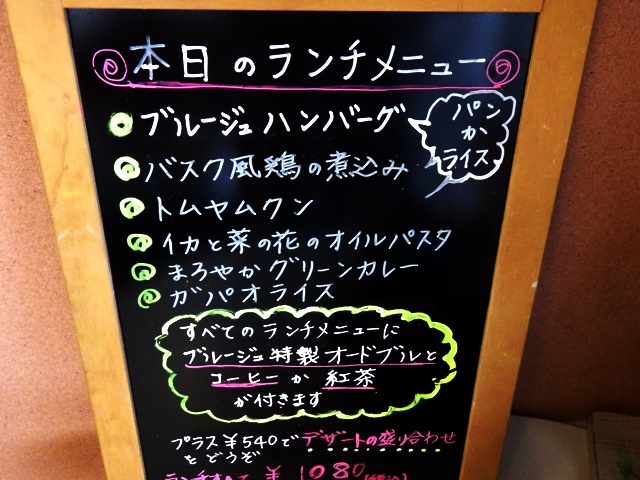 本日のランチメニュー
ブルージュハンバーグ
パン
か
ライス
バスク風鶏の煮込み
トムヤムクン
イカと菜の花のオイルパスタ
まろやかグリーンカレー
ガパオライス
すべてのランチメニューに
ブルージュ特製オードブルと
コーヒーか紅茶
が付きます
プラス¥540でデザートの盛り合わせ
をどうぞ
¥1080